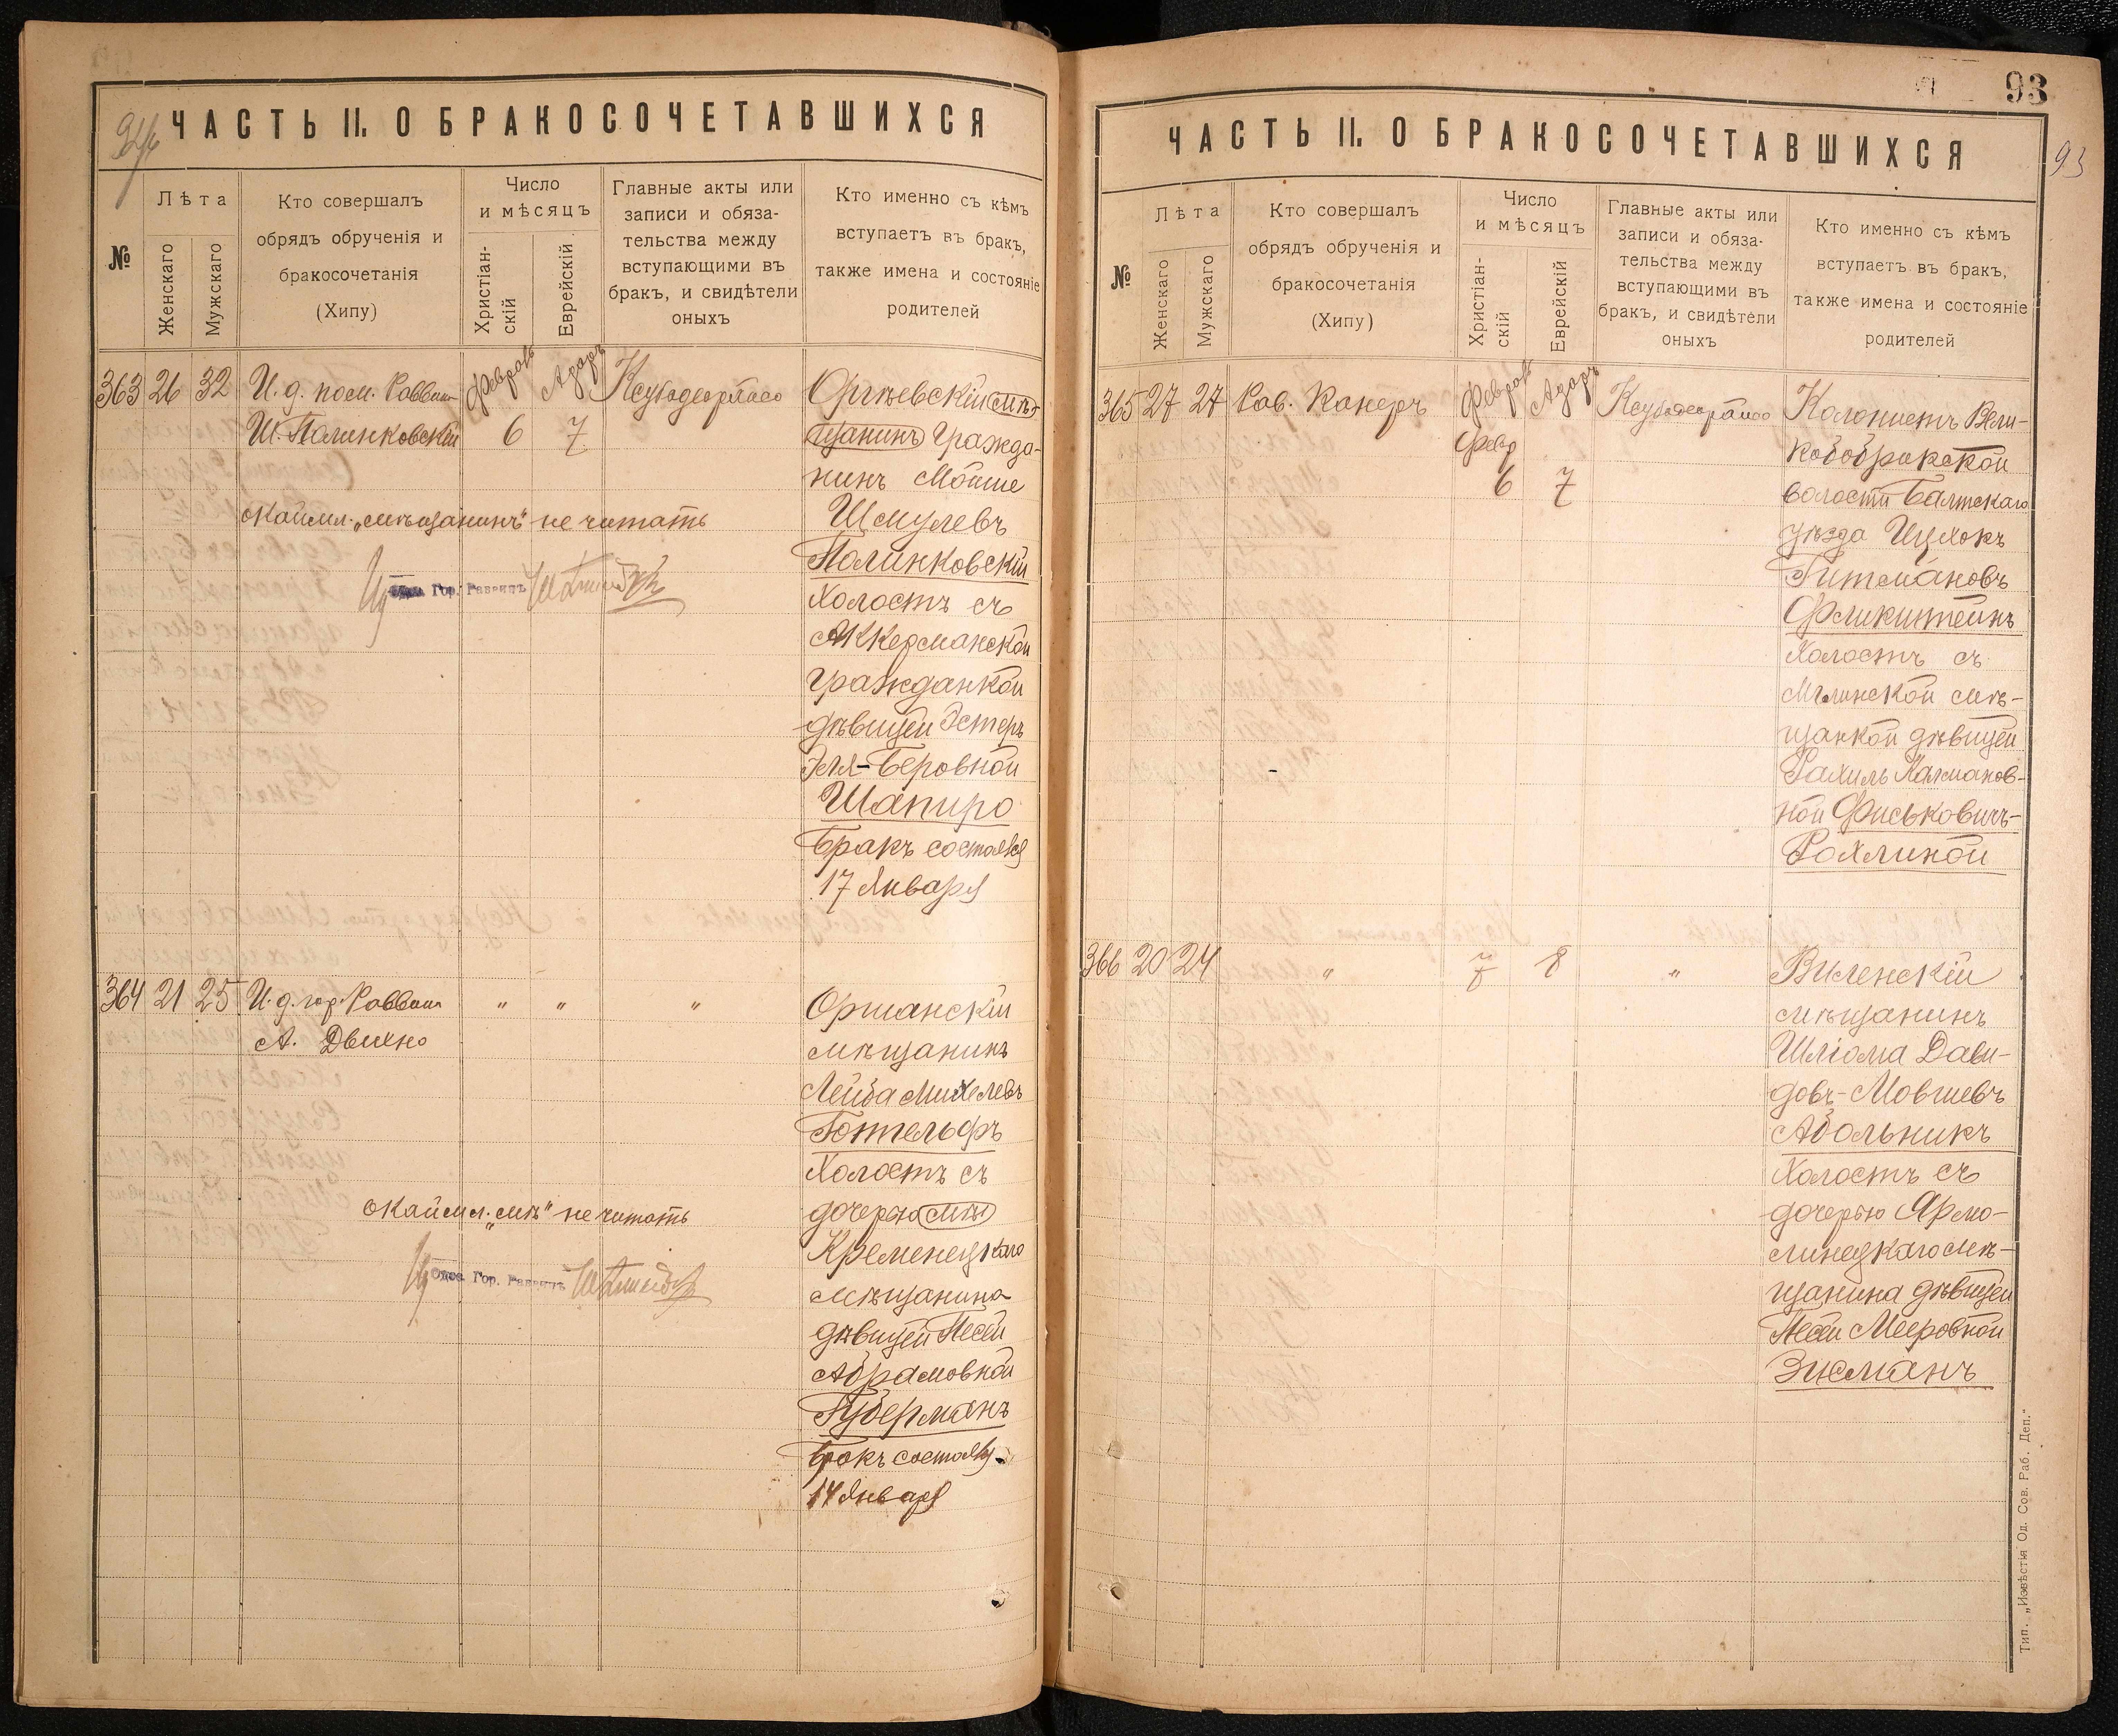 ЧАСТЬ II. О БРАКОСОЧЕТАВШИХСЯ
№
Лѣта
Женскаго
Мужскаго
Кто совершалъ
обрядъ обрученія и
бракосочетанія
(Хипу)
Число
и мѣсяцъ
Христіан-
скій
Еврейскій
Главные акты или
записи и обяза-
тельства между
вступающими въ
бракъ, и свидѣтели
оныхъ
Кто именно съ кѣмъ
вступаетъ въ бракъ,
также имена и состояніе
родителей
363 26 32
И. д. пом. Раввина
Ш. Полинковскій
Феврал
6
Адаръ
7
Оргѣевскій мѣ-
щанинъ Гражда-
нинъ Мойше
Шмулевъ
Полинковскій
Холостъ съ
Аккерманской
гражданкой
дѣвицей Эстеръ
Эля-Беровной
Шапиро
Бракъ состоялся
17 Января
Окаймл. „мѣщанинъ" не читать
Одес. Гор. Раввинъ
364 21 25
И. д. гор. Раввина
А. Двихно
" " "
Оршанскій
мѣщанинъ
Лейба Михелевъ
Готгельфъ
Холостъ съ
дочерью мѣ
Кременецкаго
мѣщанина
дѣвицей Песей
Абрамовной
Губерманъ
Бракъ состоялся
14 Января
Окаймл. „мѣ" не читать
Одес. Гор. Раввинъ
93
93
ЧАСТЬ II. О БРАКОСОЧЕТАВШИХСЯ
№
Лѣта
Женскаго
Мужскаго
Кто совершалъ
обрядъ обрученія и
бракосочетанія
(Хипу)
Число
и мѣсяцъ
Христіан-
скій
Еврейскій
Главные акты или
записи и обяза-
тельства между
вступающими въ
бракъ, и свидѣтели
оныхъ
Кто именно съ кѣмъ
вступаетъ въ бракъ,
также имена и состояніе
родителей
365 27 27
Рав. Канеръ
Феврал
Февр
6
Адаръ
7
Колонистъ Вели-
кобобрикской
волости Балтскаго
уѣзда Ицхокъ
Гитмановъ
Фликштейнъ
Холостъ съ
Мглинской мѣ-
щанкой дѣвицей
Рахиль Калманов-
ной Фиськовичъ-
Рохлиной
366 20 24
"
7
8
"
Виленскій
мѣщанинъ
Шліома Дави-
довъ-Мовшевъ
Абольникъ
Холостъ съ
дочерью Ярмо-
линецкаго мѣ-
щанина дѣвицей
Песей Мееровной
Зисманъ
Тип. „Извѣстія Од. Сов. Раб. Деп."